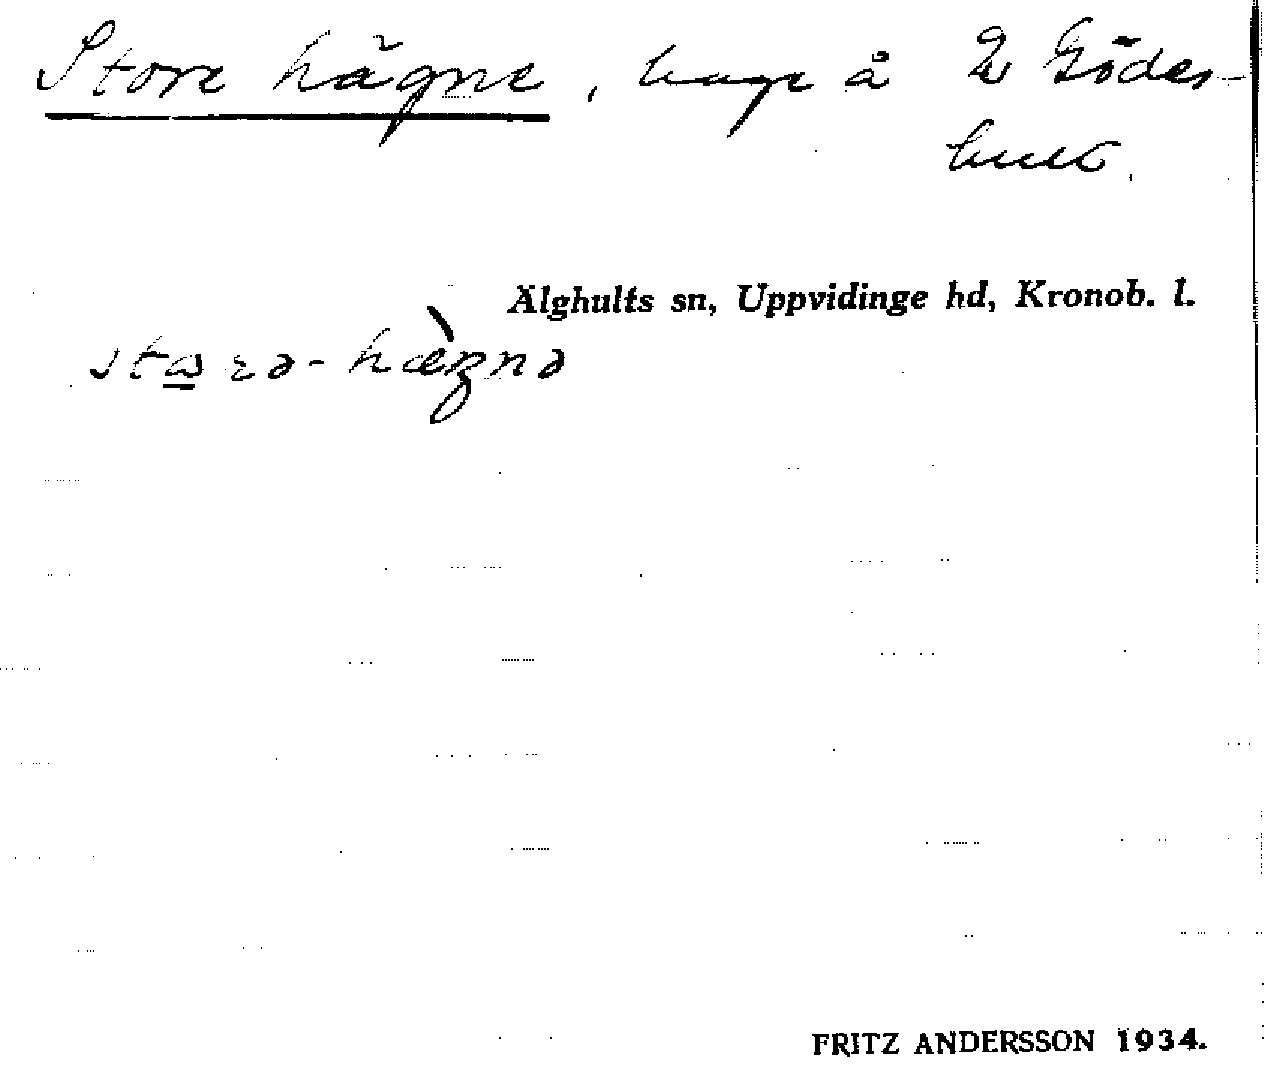 Store hägne, hage å 2 Gödes-
hult.
Älghults sn, Uppvidinge hd, Kronob. l.
FRITZ ANDERSSON 1934.